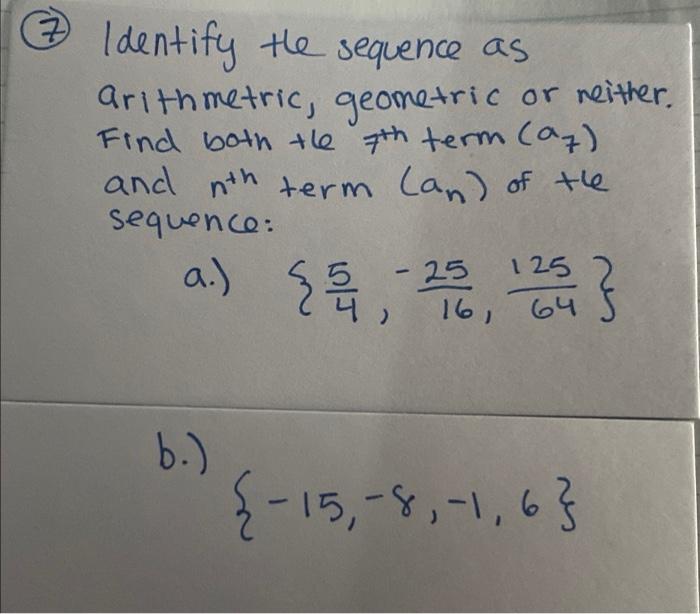 7 Identify the sequence as
arithmetric, geometric or neither.
Find both the 7th term (a₇)
and nth term (aₙ) of the
sequence:
a.) {5/4, -25/16, 125/64}
b.)
{-15, -8, -1, 6}